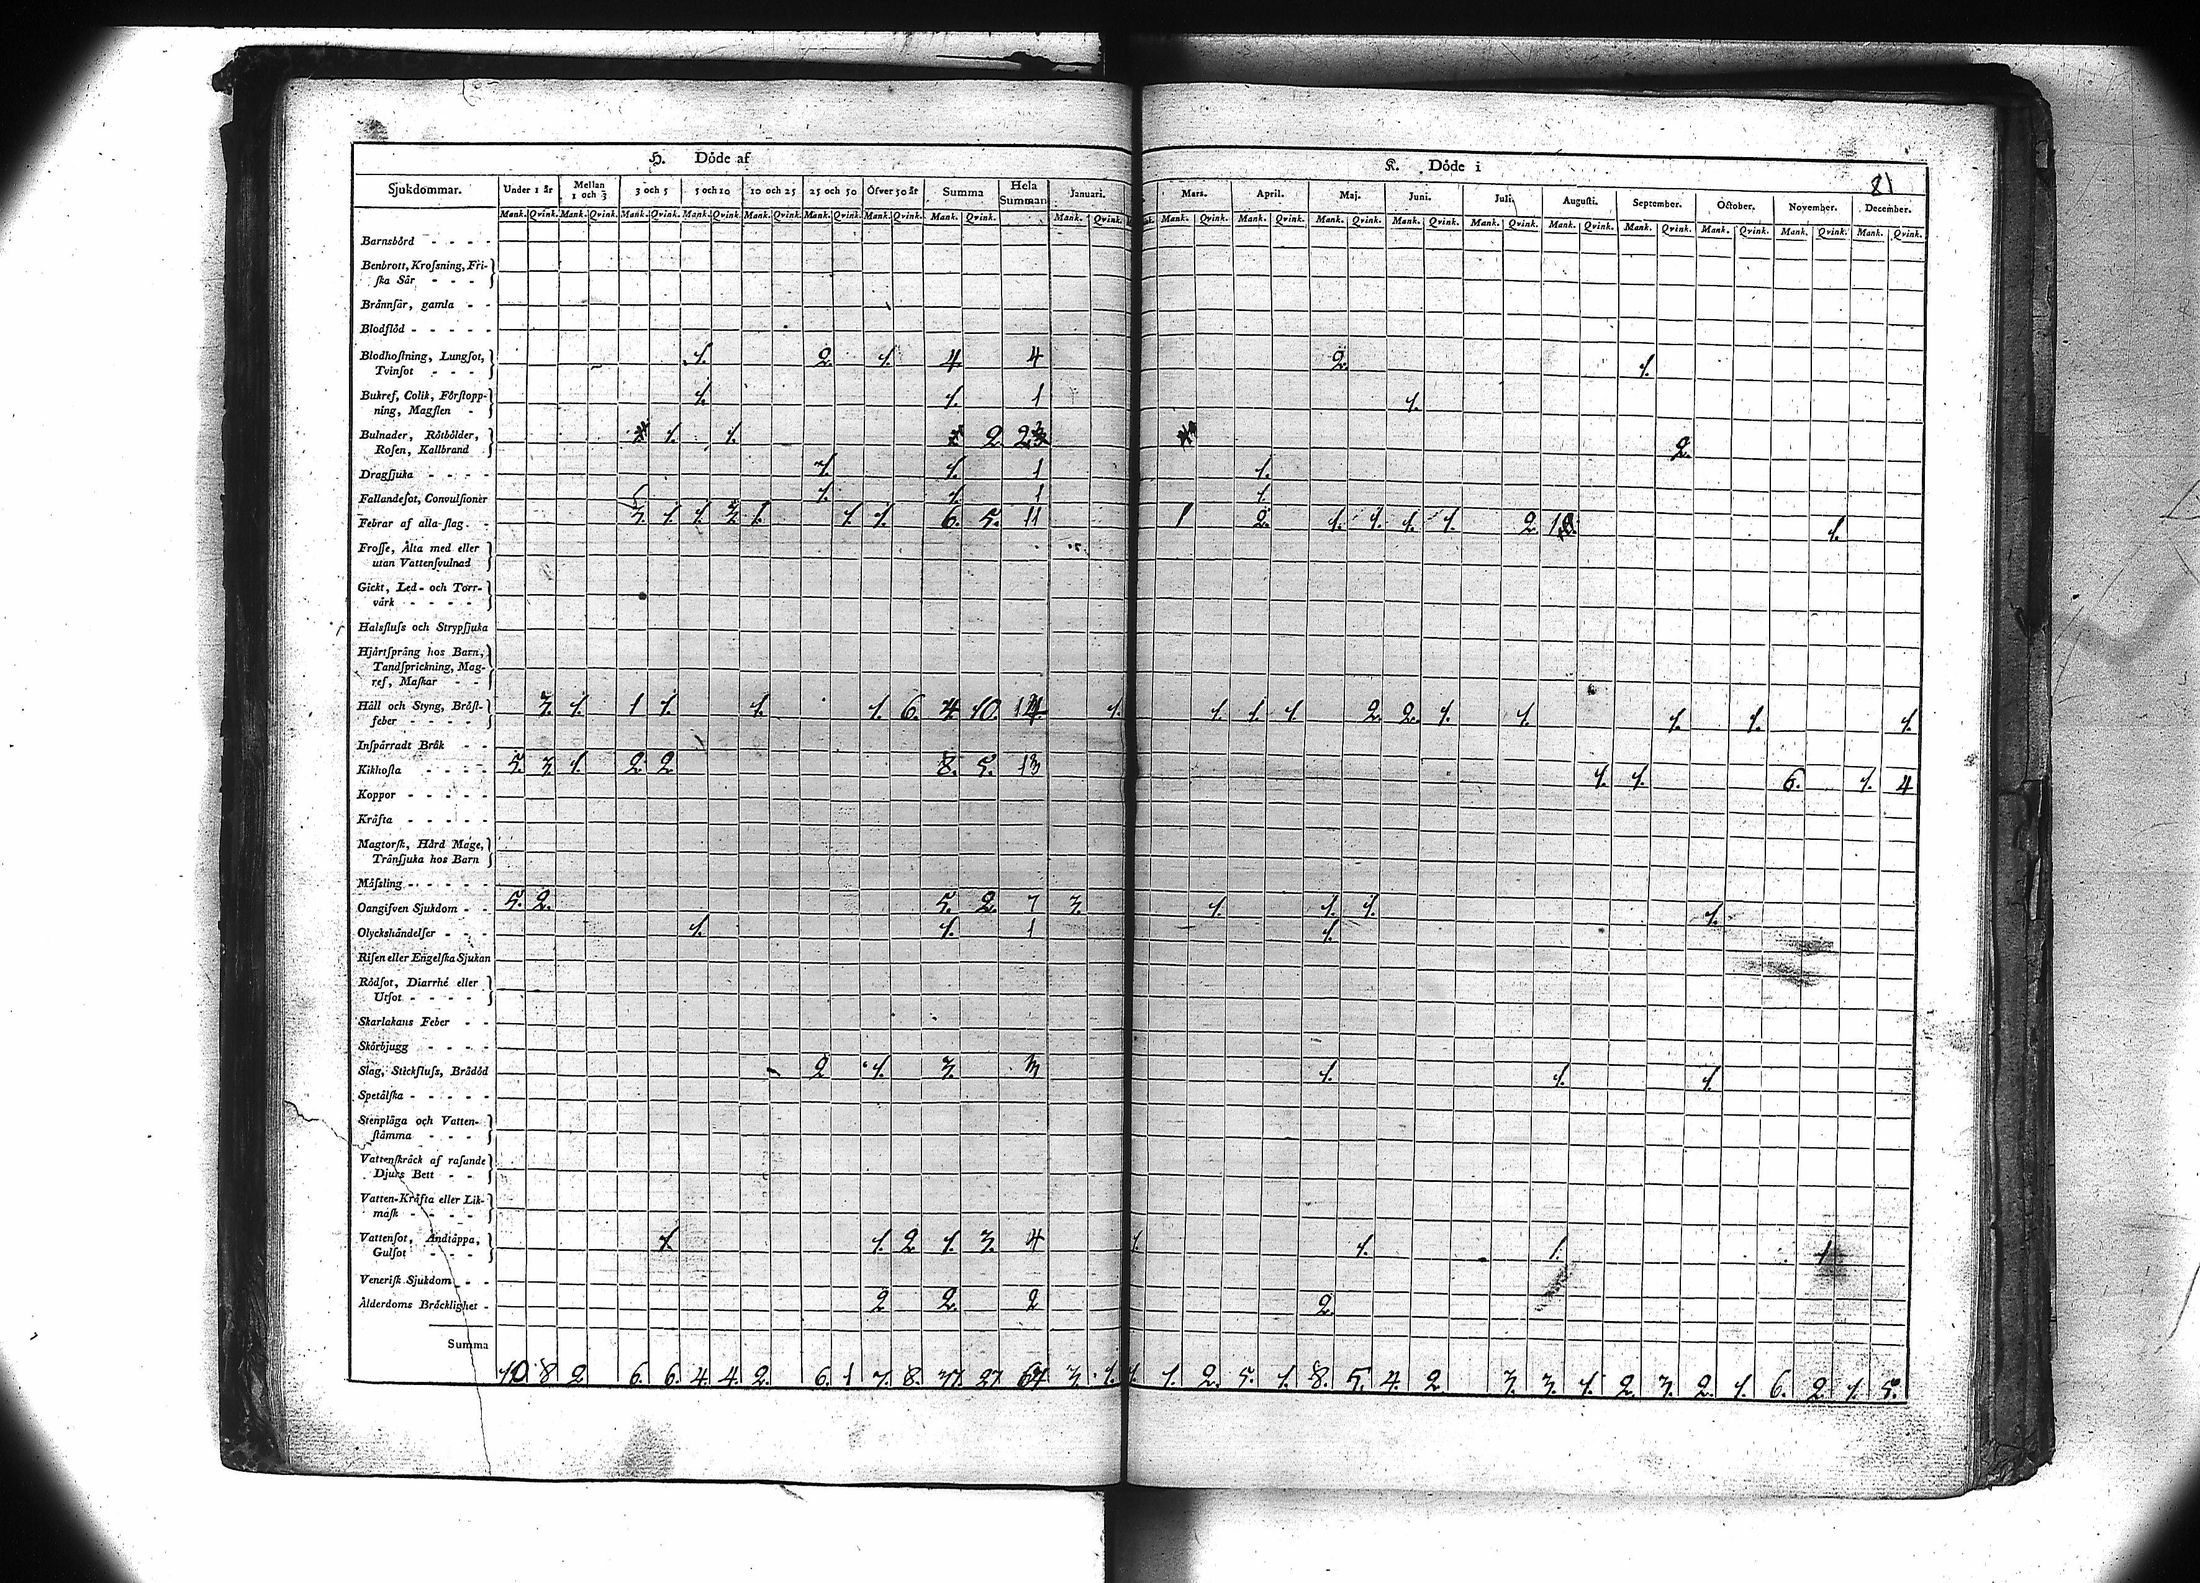 H. Döde af
K. Döde i
81
Sjukdommar. Under 1 år Mellan 1 och 3 3 och 5 5 och 10 10 och 25 25 och 50 Öfver 50 år Summa Hela Summan Januari. Mars. April. Maj. Juni. Juli. Augusti. September. October. November. December.
Mank. Qvink. Mank. Qvink. Mank. Qvink. Mank. Qvink. Mank. Qvink. Mank. Qvink. Mank. Qvink. Mank. Qvink. Mank. Qvink. Mank. Qvink. Mank. Qvink. Mank. Qvink. Mank. Qvink. Mank. Qvink. Mank. Qvink. Mank. Qvink. Mank. Qvink. Mank. Qvink. Mank. Qvink.
Barnsbörd - - - -
Benbrott, Krossning, Fri-
ska Sår - - -
Brännsår, gamla - -
Blodflöd - - - - -
Blodhostning, Lungsot, 1. 2. 1. 4. 4 2. 1.
Tvinsot - - -
Bukref, Colik, Förstopp- 1. 1. 1 1.
ning, Magslen -
Bulnader, Rötbölder, 1. 1. 2. 2
Rosen, Kallbrand 2.
Dragsjuka - - - - 1. 1. 1 1.
Fallandesot, Convulsioner 1. 1. 1 1.
Febrar af alla slag - - 3. 1. 1. 3. 1. 1. 1. 6. 5. 11 1 2. 1. 1. 1. 1. 2. 1 1.
Frosse, Älta med eller
utan Vattensvulnad
Gickt, Led- och Torr-
värk - - - -
Halsfluss och Strypsjuka
Hjärtsprång hos Barn,
Tandsprickning, Mag-
ref, Maskar - -
Håll och Styng, Bröst- 3. 1. 1 1. 1. 1. 6. 4. 10. 14. 1. 1. 1. 1. 2. 2. 1. 1. 1. 1. 1.
feber - - - -
Inspärradt Bråk - -
Kikhosta - - - - 5. 3. 1. 2 2 8. 5. 13 1. 1. 6. 1. 4
Koppor - - - - -
Kräfta - - - - -
Magtorsk, Hård Mage,
Trånsjuka hos Barn
Mässling - - - - -
Oangifven Sjukdom - - 5. 2. 5. 2. 7 3. 1. 1. 1. 1.
Olyckshändelser - - - 1. 1. 1 1.
Risen eller Engelska Sjukan
Rödsot, Diarrhé eller
Utsot - - - -
Skarlakans Feber - -
Skörbjugg - - - -
Slag, Stickfluss, Brådöd 2 1. 3. 3 1. 1. 1.
Spetälska - - - - -
Stenplåga och Vatten-
stämma - - -
Vattenskräck af rasande
Djurs Bett - -
Vatten-Kräfta eller Lik-
mask - - - -
Vattensot, Andtäppa, 1. 1. 2 1. 3. 4 1. 1. 1. 1
Gulsot - - -
Venerisk Sjukdom - - -
Ålderdoms Bräcklighet - 2 2. 2 2.
Summa
10 8 2 6. 6. 4. 4. 2. 6. 1 7. 8. 37. 27 64 3. 1. 1. 1. 2. 5. 1. 8. 5. 4. 2. 3. 3. 1. 2 3. 2. 1. 6. 2. 1. 5.